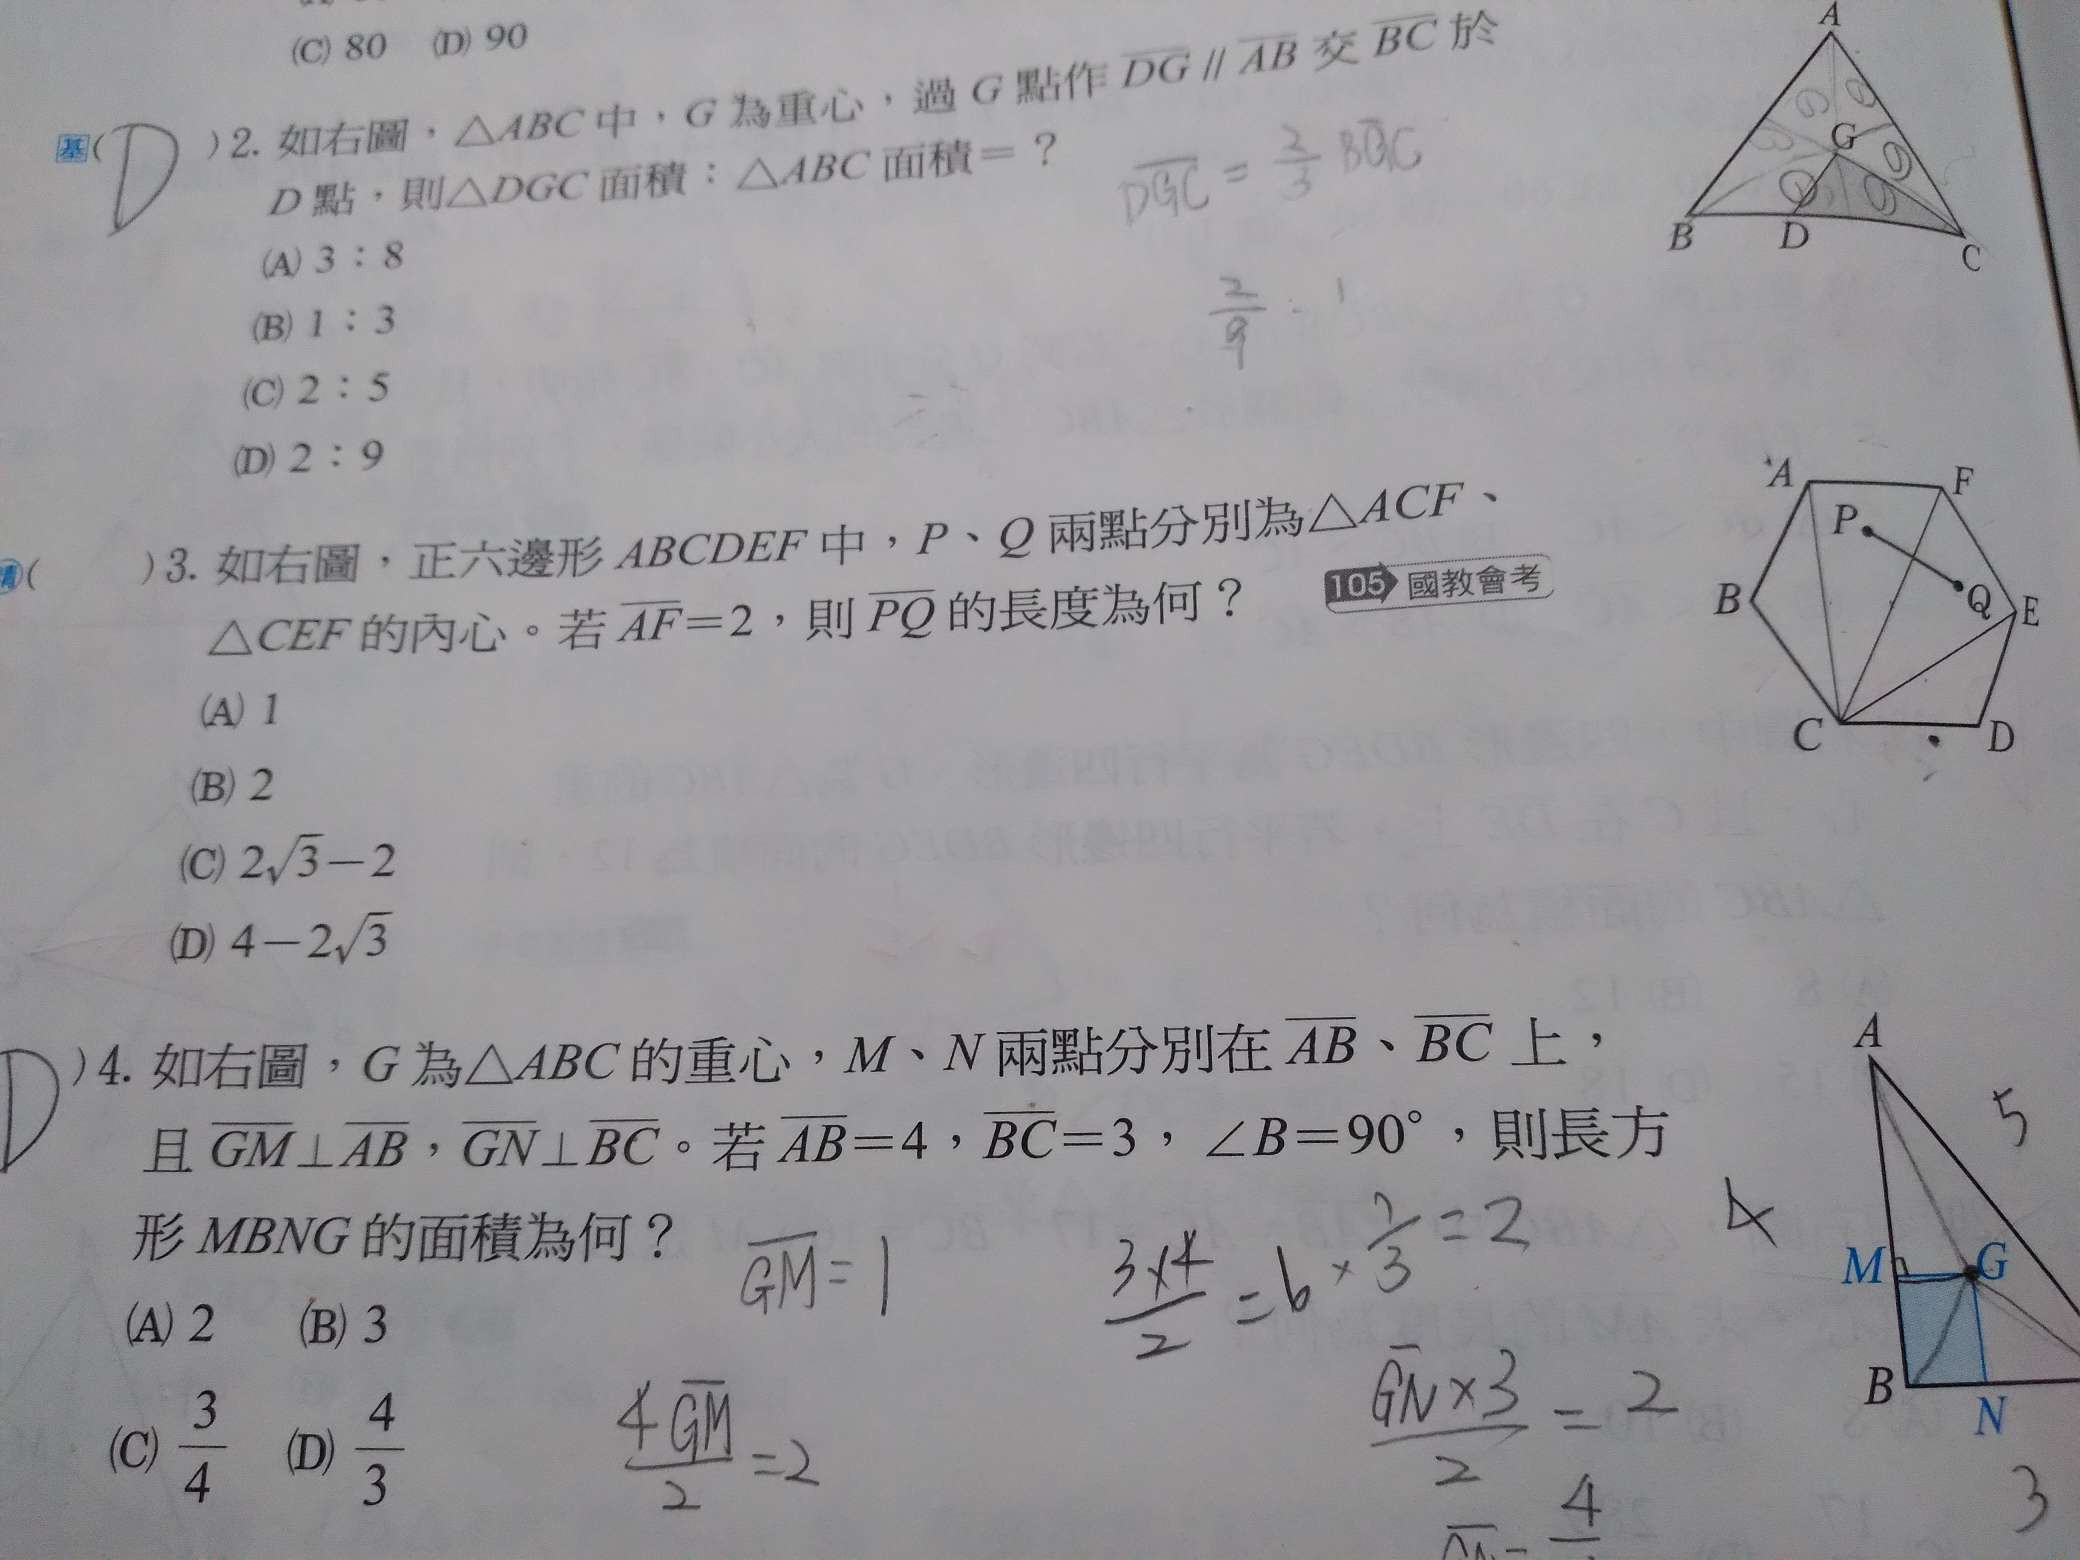 (C) 80 (D) 90
基( D )2. 如右圖，△ABC中，G為重心，過G點作DG // AB 交BC於
D點，則△DGC面積：△ABC面積＝？
(A) 3：8
(B) 1：3
(C) 2：5
(D) 2：9
DGC = 2/3 BGC
2/9 : 1
A
G
B
D
C
6
6
6
6
( )3. 如右圖，正六邊形ABCDEF中，P、Q兩點分別為△ACF、
△CEF的內心。若AF＝2，則PQ的長度為何？ 105 國教會考
(A) 1
(B) 2
(C) 2√3－2
(D) 4－2√3
A
F
P
B
Q
E
C
D
D )4. 如右圖，G為△ABC的重心，M、N兩點分別在AB、BC上，
且GM⊥AB，GN⊥BC。若AB＝4，BC＝3，∠B＝90°，則長方
形MBNG的面積為何？
(A) 2 (B) 3
(C) 3/4 (D) 4/3
GM = 1
3×4/2 = 6 × 1/3 = 2
4GM/2 = 2
GN×3/2 = 2
A
5
4
M
G
B
N
3